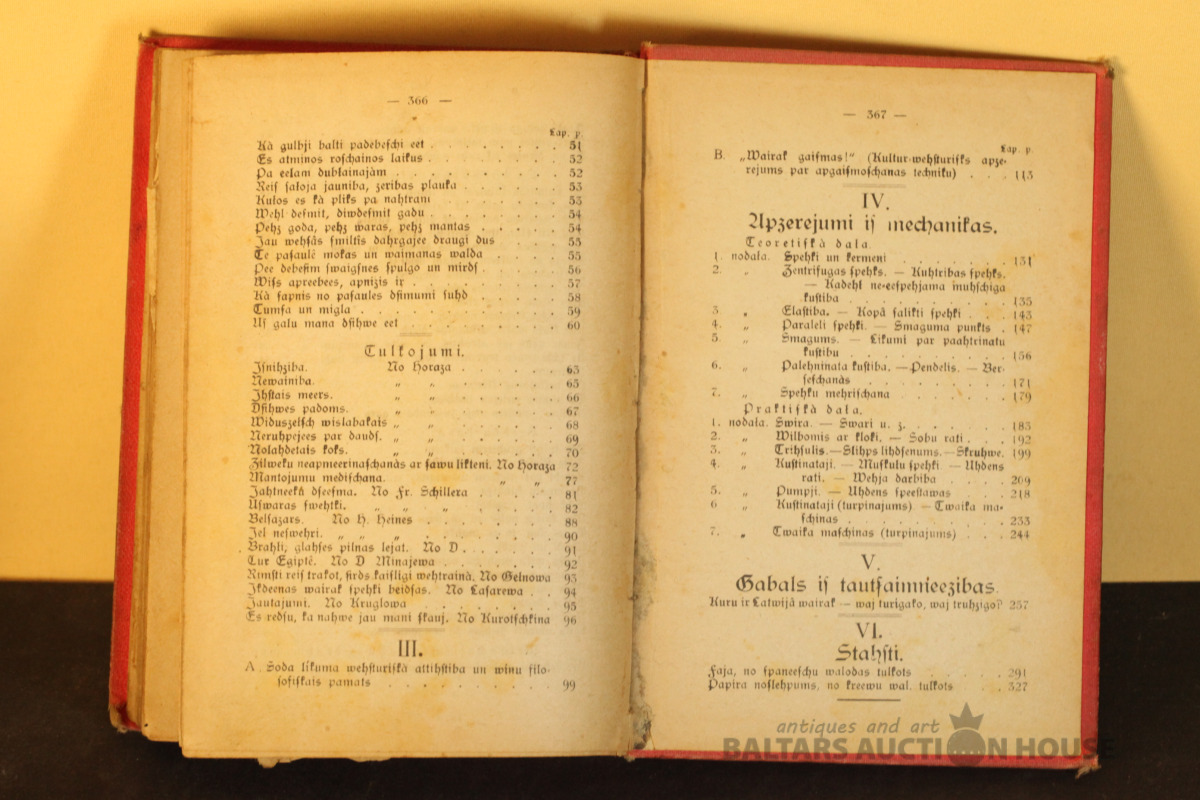 — 366 —
Lap. p.
Kà gulbji balti padebeschi eet . . . . . . . . . 51
Es atminos roschainos laikus . . . . . . . . . 52
Pa eelam dublainajàm . . . . . . . . . . . 52
Reis saloja jauniba, zeribas plauka . . . . . . . 53
Kulos es kà pliks pa nahtram . . . . . . . . . 53
Wehl desmit, diwdesmit gadu . . . . . . . . . 54
Pehz goda, pehz waras, pehz mantas . . . . . . 54
Jau wehsås smiltis dahrgajee draugi dus . . . . . 55
Te pasaulê mokas un waimanas walda . . . . . . 55
Pee debesim swaigsnes spulgo un mirds . . . . . 56
Wiss apreebees, apnizis ir . . . . . . . . . . 57
Kà sapnis no pasaules dsimumi suhd . . . . . . 58
Tumsa un migla . . . . . . . . . . . . . 59
Us galu mana dsihwe eet . . . . . . . . . . 60
Tulkojumi.
Isnihziba. No Horaza . . . . . . . 63
Newainiba. „ „ . . . . . . . 65
Ihstais meers. „ „ . . . . . . . 66
Dsihwes padoms. „ „ . . . . . . . 67
Widuszelsch wislabakais „ „ . . . . . . . 68
Neruhpejees par dauds. „ „ . . . . . . . 69
Nolahdetais koks. „ „ . . . . . . . 70
Zilweku neapmeerinaschanàs ar sawu likteni. No Horaza 72
Mantojumu medischana. „ „ 77
Jahtneekå dseesma. No Fr. Schillera . . . . . . 81
Uswaras swehtki. „ „ „ . . . . . . 82
Belsazars. No H. Heines . . . . . . . . . 88
Jel neswehri. „ „ „ . . . . . . . . . 90
Brahli, glahses pilnas lejat. No D . . . . . . . 91
Tur Egiptê. No D Minajewa . . . . . . . . 92
Rimsti reis trakot, sirds kaisligi wehtrainà. No Gelnowa 93
Ikdeenas wairak spehki beidsas. No Lasarewa . . 94
Jautajumi. No Kruglowa . . . . . . . . . . 95
Es redsu, ka nahwe jau mani skauj. No Kurotschkina 96
III.
A. Soda likuma wehsturiskà attihstiba un winu filo-
sofiskais pamats . . . . . . . . . . . 99
— 367 —
Lap. p.
B. „Wairak gaismas!“ (Kultur-wehsturisks apze-
rejums par apgaismoschanas techniku) . . . 113
IV.
Apzerejumi is mechanikas.
Teoretiskà dala.
1. nodala. Spehki un kermeni . . . . . . . . 131
2. „ Zentrifugas spehks. — Kuhtribas spehks.
— Kadehl ne-eespehjama muhschiga
kustiba . . . . . . . . . . . . 135
3 „ Elastiba. — Kopå salikti spehki . . . . 143
4. „ Paraleli spehki. — Smaguma punkts . 147
5. „ Smagums. — Likumi par paahtrinatu
kustibu . . . . . . . . . . . . 156
6. „ Palehninata kustiba. — Pendelis. — Ber-
seschanàs . . . . . . . . . . . 171
7. „ Spehku mehrischana . . . . . . . . 179
Praktiskà dala.
1. nodala. Swira. — Swari u. z. . . . . . . . 183
2. „ Wilbomis ar kloki. — Sobu rati . . . 192
3. „ Trihsulis. — Slihps lihdsenums. — Skruhwe. 199
4. „ Kustinataji. — Muskulu spehki — Uhdens
rati. — Wehja darbiba . . . . . . 209
5. „ Pumpji. — Uhdens speestawas . . . . 218
6 „ Kustinataji (turpinajums) — Twaika ma-
schinas . . . . . . . . . . . . 233
7. „ Twaika maschinas (turpinajums) . . . 244
V.
Gabals is tautsaimnieezibas.
Kuru ir Latwijå wairak — waj turigako, waj truhzigo? 257
VI.
Stahsti.
Faja, no spaneeschu walodas tulkots . . . . . . 291
Papira noslehpums, no kreewu wal. tulkots . . 327
antiques and art
BALTARS AUCTION HOUSE